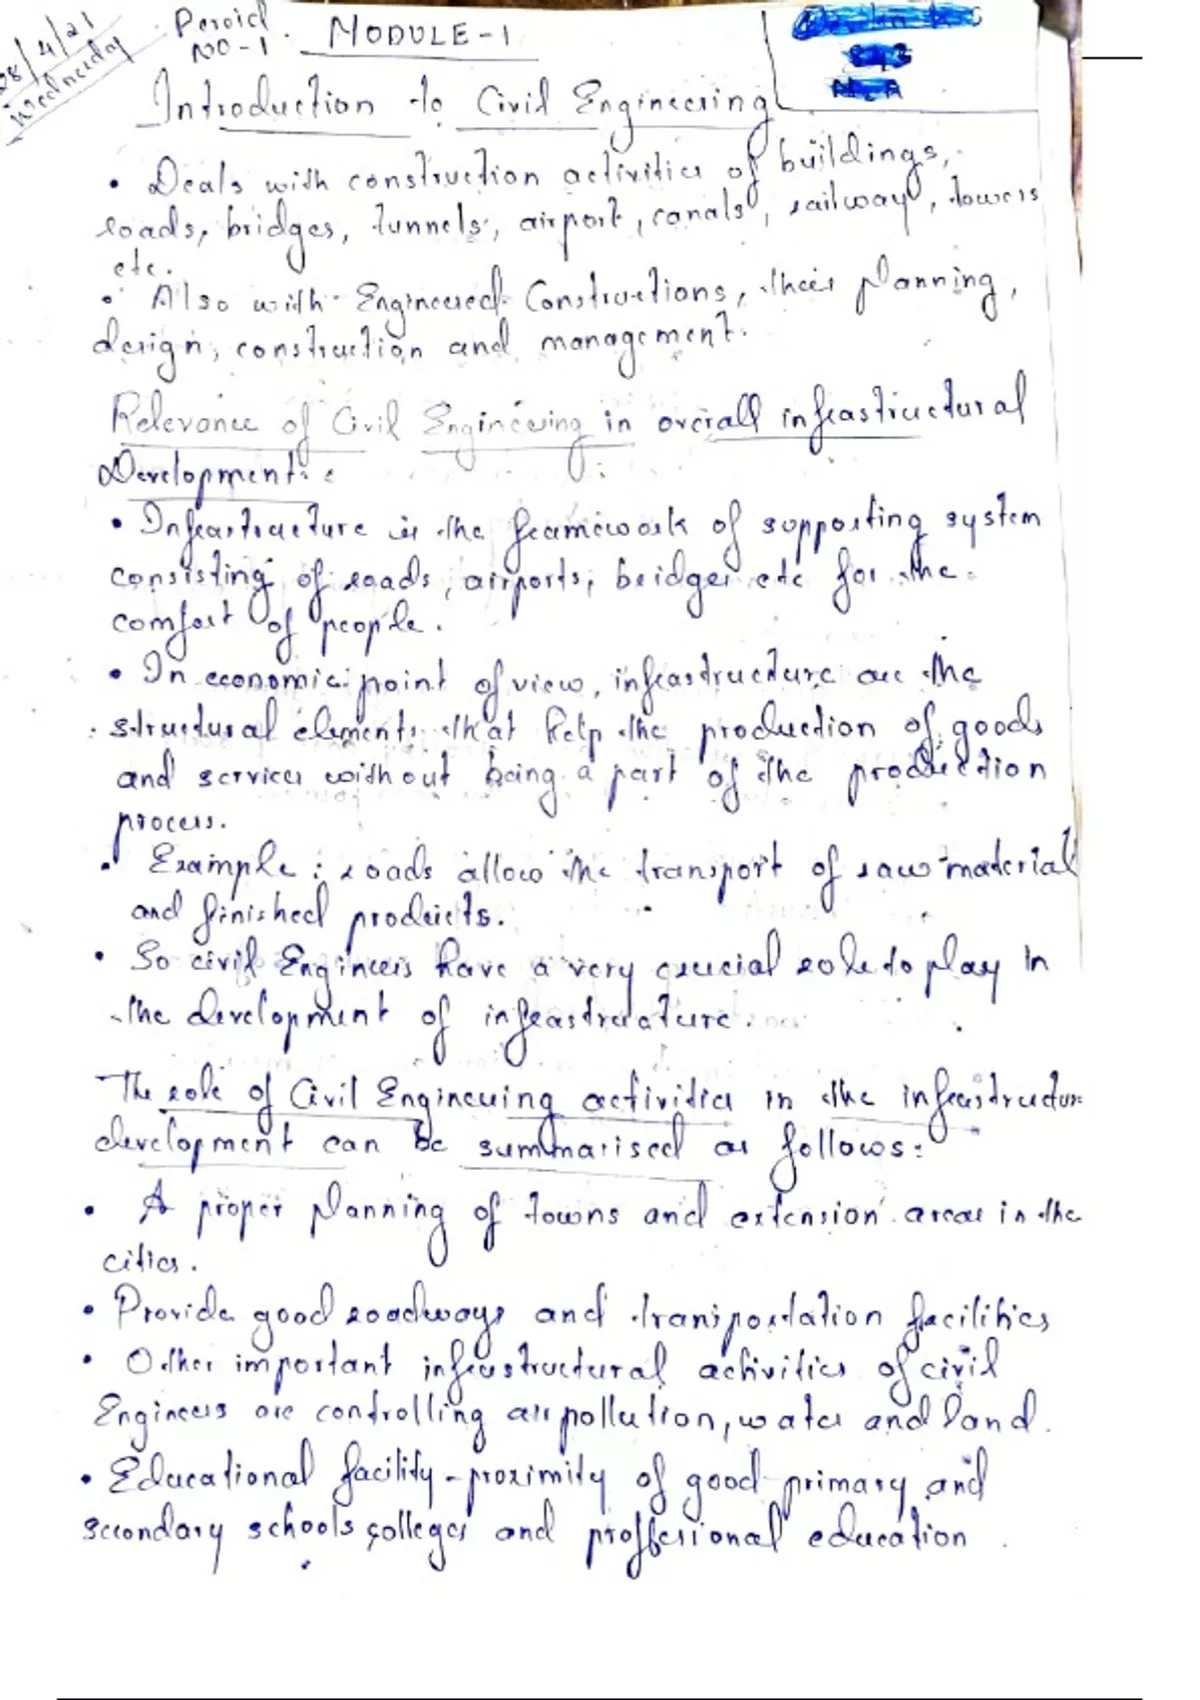 08/4/21
Wednesday
Peroid
NO-1
MODULE-1
Introduction to Civil Engineering
• Deals with construction activities of buildings,
roads, bridges, tunnels, airport, canals, railway, towers
etc.
• Also with Engineered Constructions, their planning,
design, construction and management.
Relevance of Civil Engineering in overall infrastructural
Development:
• Infrastructure is the framework of supporting system
consisting of roads, airports, bridges etc for the
comfort of people.
• In economic point of view, infrastructure are the
structural elements that help the production of goods
and services without being a part of the production
process.
• Example : roads allow the transport of raw material
and finished products.
• So civil Engineers have a very crucial role to play in
the development of infrastructure.
The role of Civil Engineering activities in the infrastructure
development can be summarised as follows:
• A proper planning of towns and extension areas in the
cities.
• Provide good roadways and transportation facilities
• Other important infrastructural activities of civil
Engineers are controlling air pollution, water and land.
• Educational facility - proximity of good primary and
secondary schools colleges and proffesional education